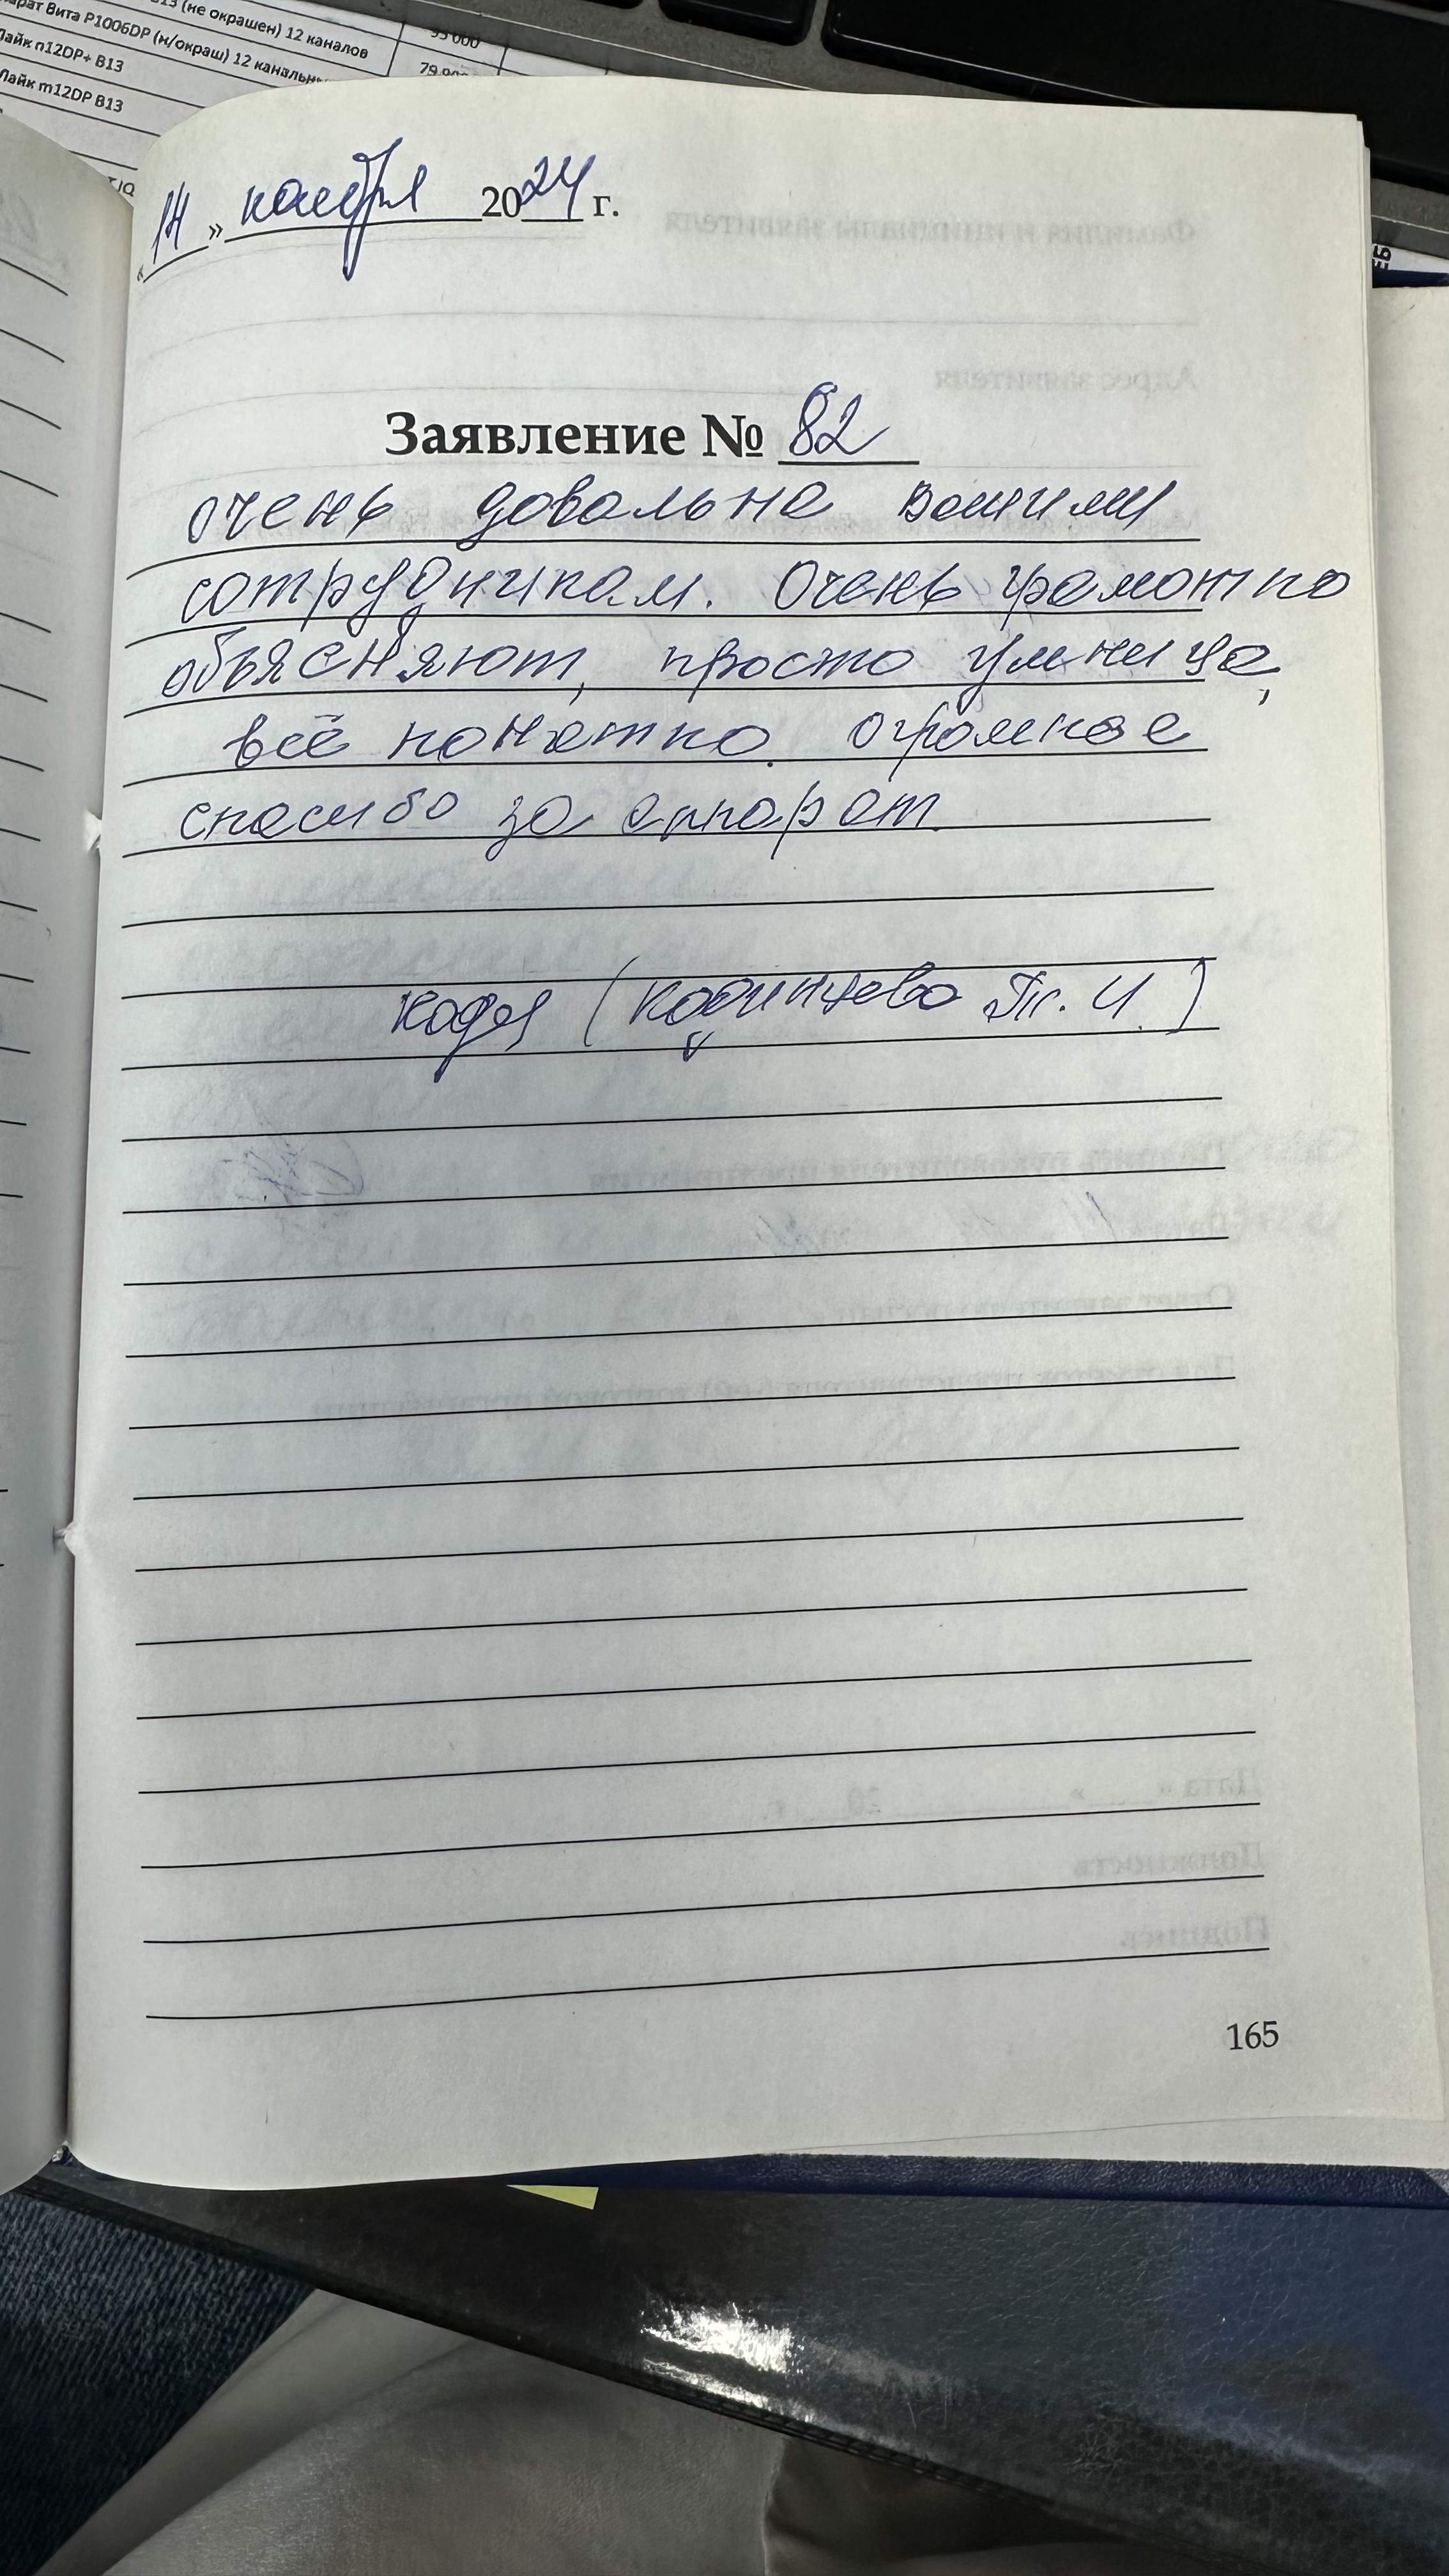 13 (не окрашен) 12 каналов
парат Вита P1006DP (н/окраш) 12 канальн
Лайк п12DP+ B13
Лайк m12DP B13
«14» ноября 2024 г.
Заявление № 82
очень довольна вашими
сотрудникам. Очень грамотно
объясняют, просто умница,
всё понятно. огромное
спасибо за аппарат.
(Т. И.)
165